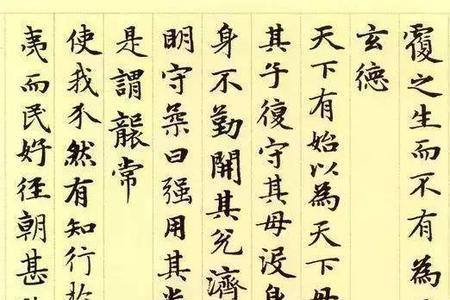 覆之生而不有為
玄德
天下有始以為天下母
其子復守其母没身
身不勤開其兌濟
明守柔曰强用其光
是謂襲常
使我介然有知行於
夷而民好徑朝甚